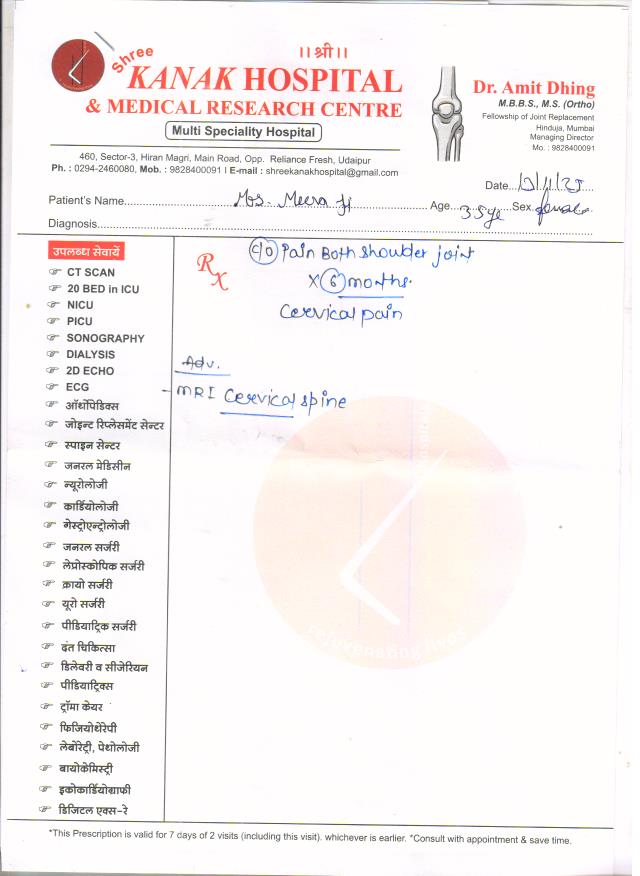 Shree
।।श्री।।
KANAK HOSPITAL
& MEDICAL RESEARCH CENTRE
Multi Speciality Hospital
460, Sector-3, Hiran Magri, Main Road, Opp. Reliance Fresh, Udaipur
Ph. : 0294-2460080, Mob. : 9828400091 I E-mail : shreekanakhospital@gmail.com
Dr. Amit Dhing
M.B.B.S., M.S. (Ortho)
Fellowship of Joint Replacement
Hinduja, Mumbai
Managing Director
Mo. : 9828400091
Date...
Patient's Name... Mrs. Meera ji Age... 35 ye Sex. female
Diagnosis...
उपलब्ध सेवायें
CT SCAN
20 BED in ICU
NICU
PICU
SONOGRAPHY
DIALYSIS
2D ECHO
ECG
ऑर्थोपेडिक्स
जोइन्ट रिप्लेसमेंट सेन्टर
स्पाइन सेन्टर
जनरल मेडिसीन
न्यूरोलोजी
कार्डियोलोजी
गेस्ट्रोएन्ट्रोलोजी
जनरल सर्जरी
लेप्रोस्कोपिक सर्जरी
क्रायो सर्जरी
यूरो सर्जरी
पीडियाट्रिक सर्जरी
दंत चिकित्सा
डिलेवरी व सीजेरियन
पीडियाट्रिक्स
ट्रॉमा केयर
फिजियोथेरेपी
लेबोरेट्री, पेथोलोजी
बायोकेमिस्ट्री
इकोकार्डियोग्राफी
डिजिटल एक्स-रे
Rx
C/O Pain Both shoulder joint
X 6 months.
Cervical pain
Adv.
- MRI Cervical spine
rejuvenating lives
*This Prescription is valid for 7 days of 2 visits (including this visit). whichever is earlier. *Consult with appointment & save time.